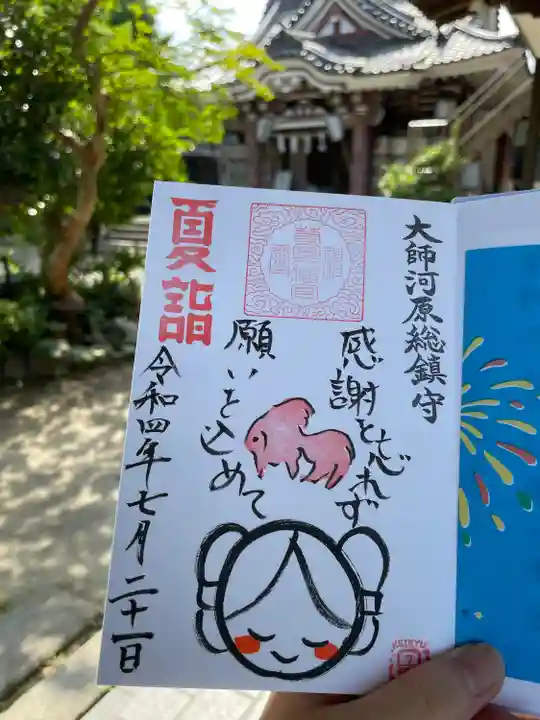 大師河原総鎮守
感謝を忘れず
願いを込めて
夏詣
令和四年七月二十一日
KEIKYU